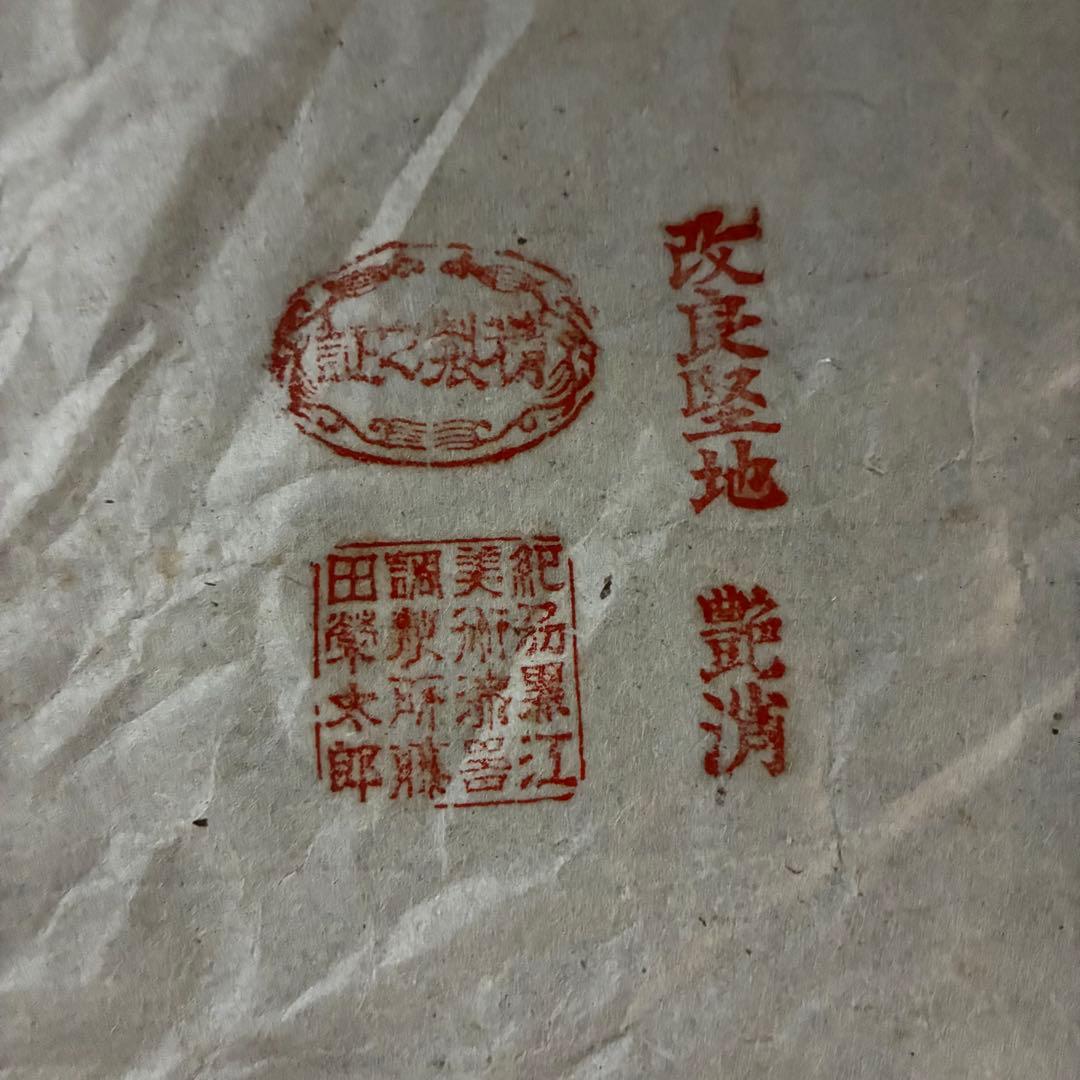 改良堅地 艶消
精製之証
紀州黒江
美術漆器
調製所勝
田榮太郎